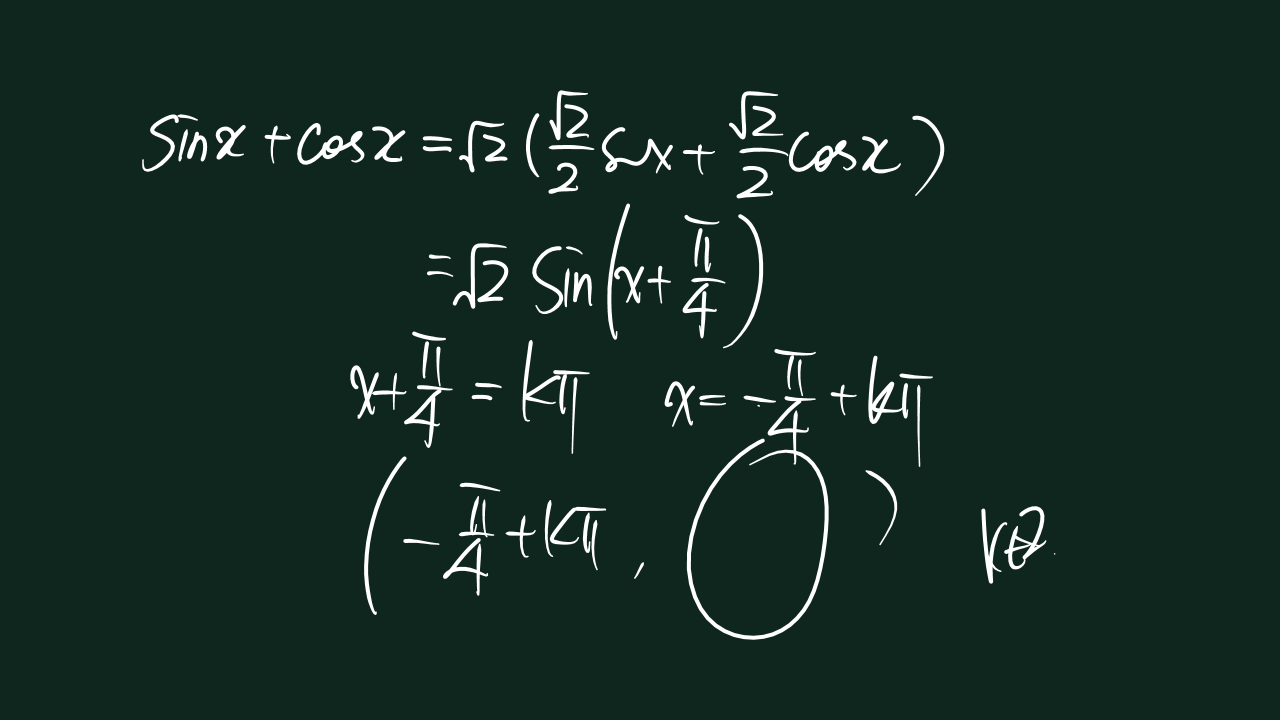 sinx + cosx = √2 ( √2/2 sinx + √2/2 cosx )
= √2 sin( x + π/4 )
x + π/4 = kπ   x = - π/4 + kπ
( - π/4 + kπ , 0 )   k∈Z.